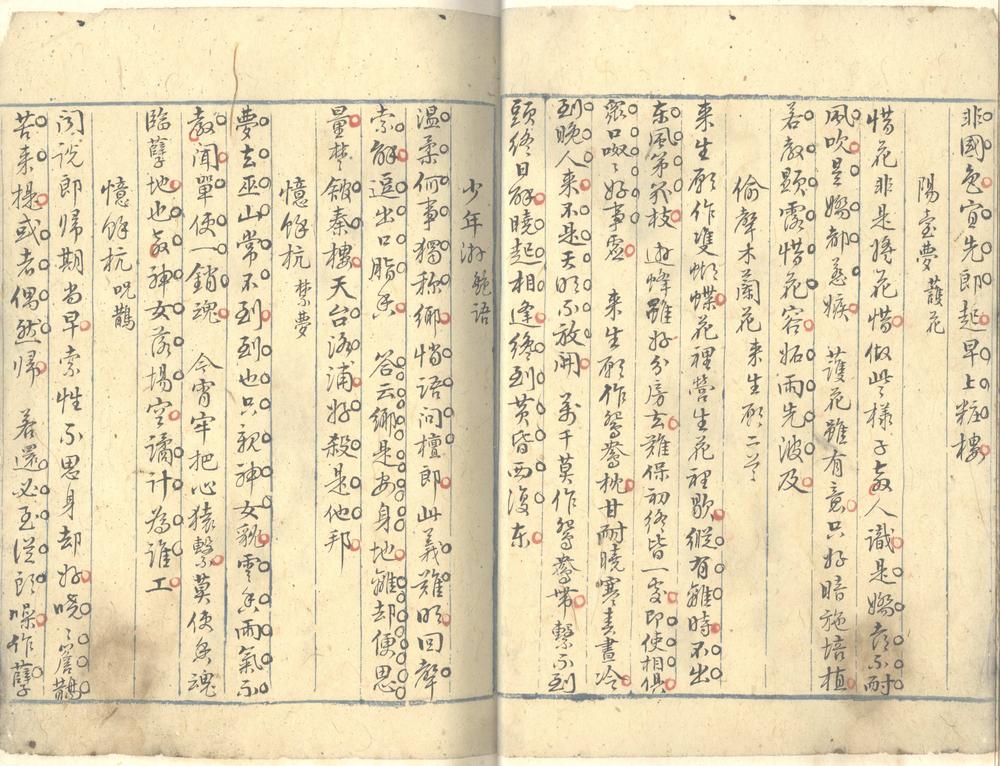 非國色宜先郎起早上粧樓
陽臺夢 護花
惜花非是將花惜做些樣子教人識是嬌花不耐
風吹是嬌都惹嫉 護花雖有意只好暗施培植
若教顯露惜花容妬雨先波及
偷聲木蘭花 来生願二首
来生願作雙蝴蝶花裡營生花裡歇縱有離時不出
东風第幾枝 遊蜂雖好分房去難保初終皆一處即使相俱
眾口啾〻好事虛 来生願作鴛鴦枕甘耐曉寒春晝冷
到晚人来不是天明不放開 萬千莫作鴛鴦帶繫不到
頭終日解曉起相逢终到黄昏西復东
少年游 艶语
温柔何事獨称鄉悄语问檀郎此義難明回聲
索解逗出口脂香 答云鄉是安身地離却便思
量楚舘秦樓天台洛浦好殺是他邦
憶餘杭 禁夢
夢去巫山常不到到也只親神女貌雲香雨氣不
教聞單便一銷魂 今宵牢把心猿繫莫使香魂
臨孽地也教神女落場空譎计為誰工
憶餘杭 呪鵲
闻説郎歸期尚早索性不思身却好哓〻簷鵲
苦来提或者偶然歸 若還必至從郎噪作孽